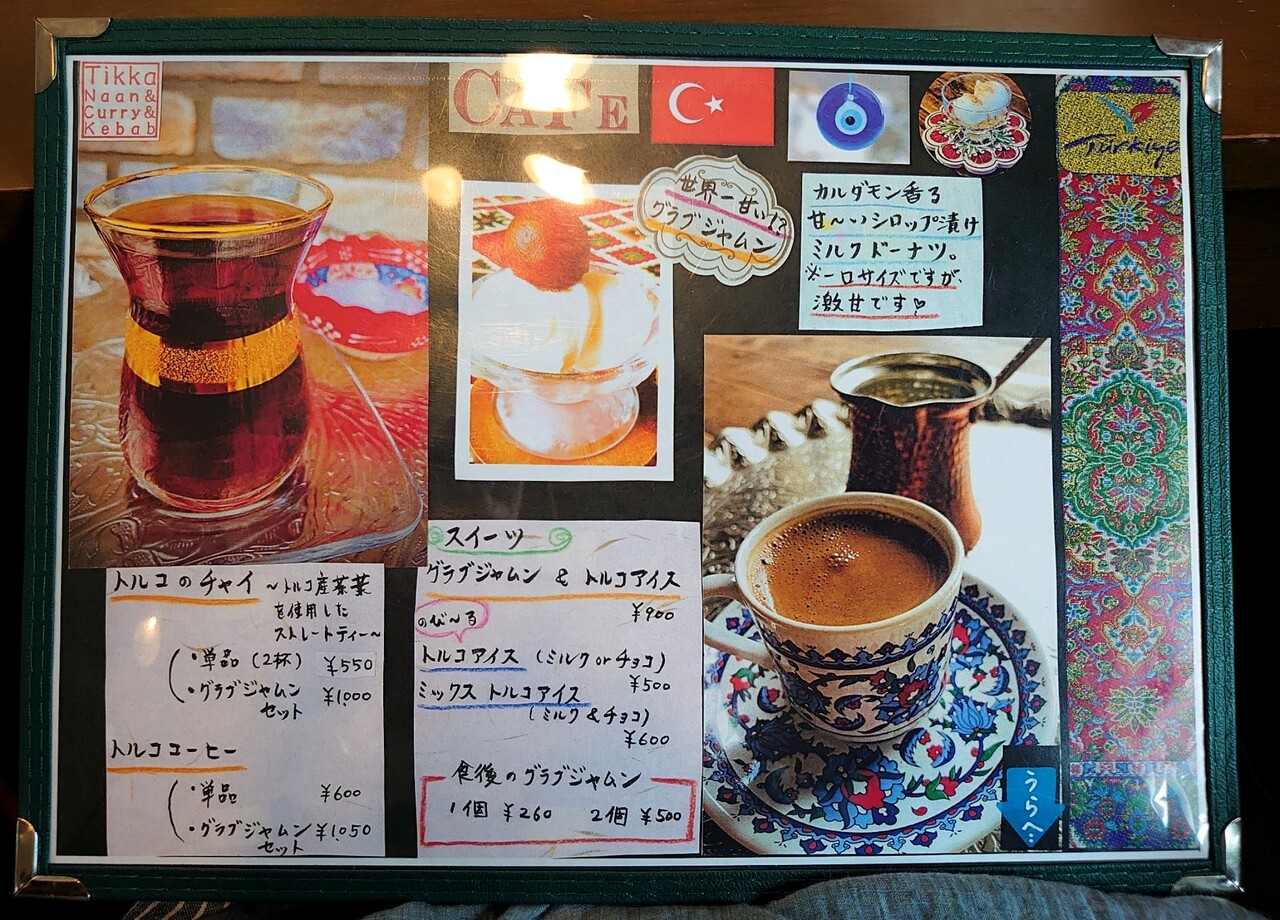 Tikka
Naan&
Curry&
Kebab
CAFE
Türkiye
世界一甘い!?
グラブジャムン
カルダモン香る
甘〜いシロップ漬け
ミルクドーナツ。
※一口サイズですが、
激甘です♡
トルコのチャイ 〜トルコ産茶葉
を使用した
ストレートティー〜
・単品(2杯) ¥550
・グラブジャムン ¥1,000
セット
トルココーヒー
・単品 ¥600
・グラブジャムン ¥1,050
セット
スイーツ
グラブジャムン & トルコアイス
¥900
のび〜る
トルコアイス (ミルク or チョコ)
¥500
ミックス トルコアイス
(ミルク & チョコ)
¥600
食後のグラブジャムン
1個 ¥260 2個 ¥500
うらへ…